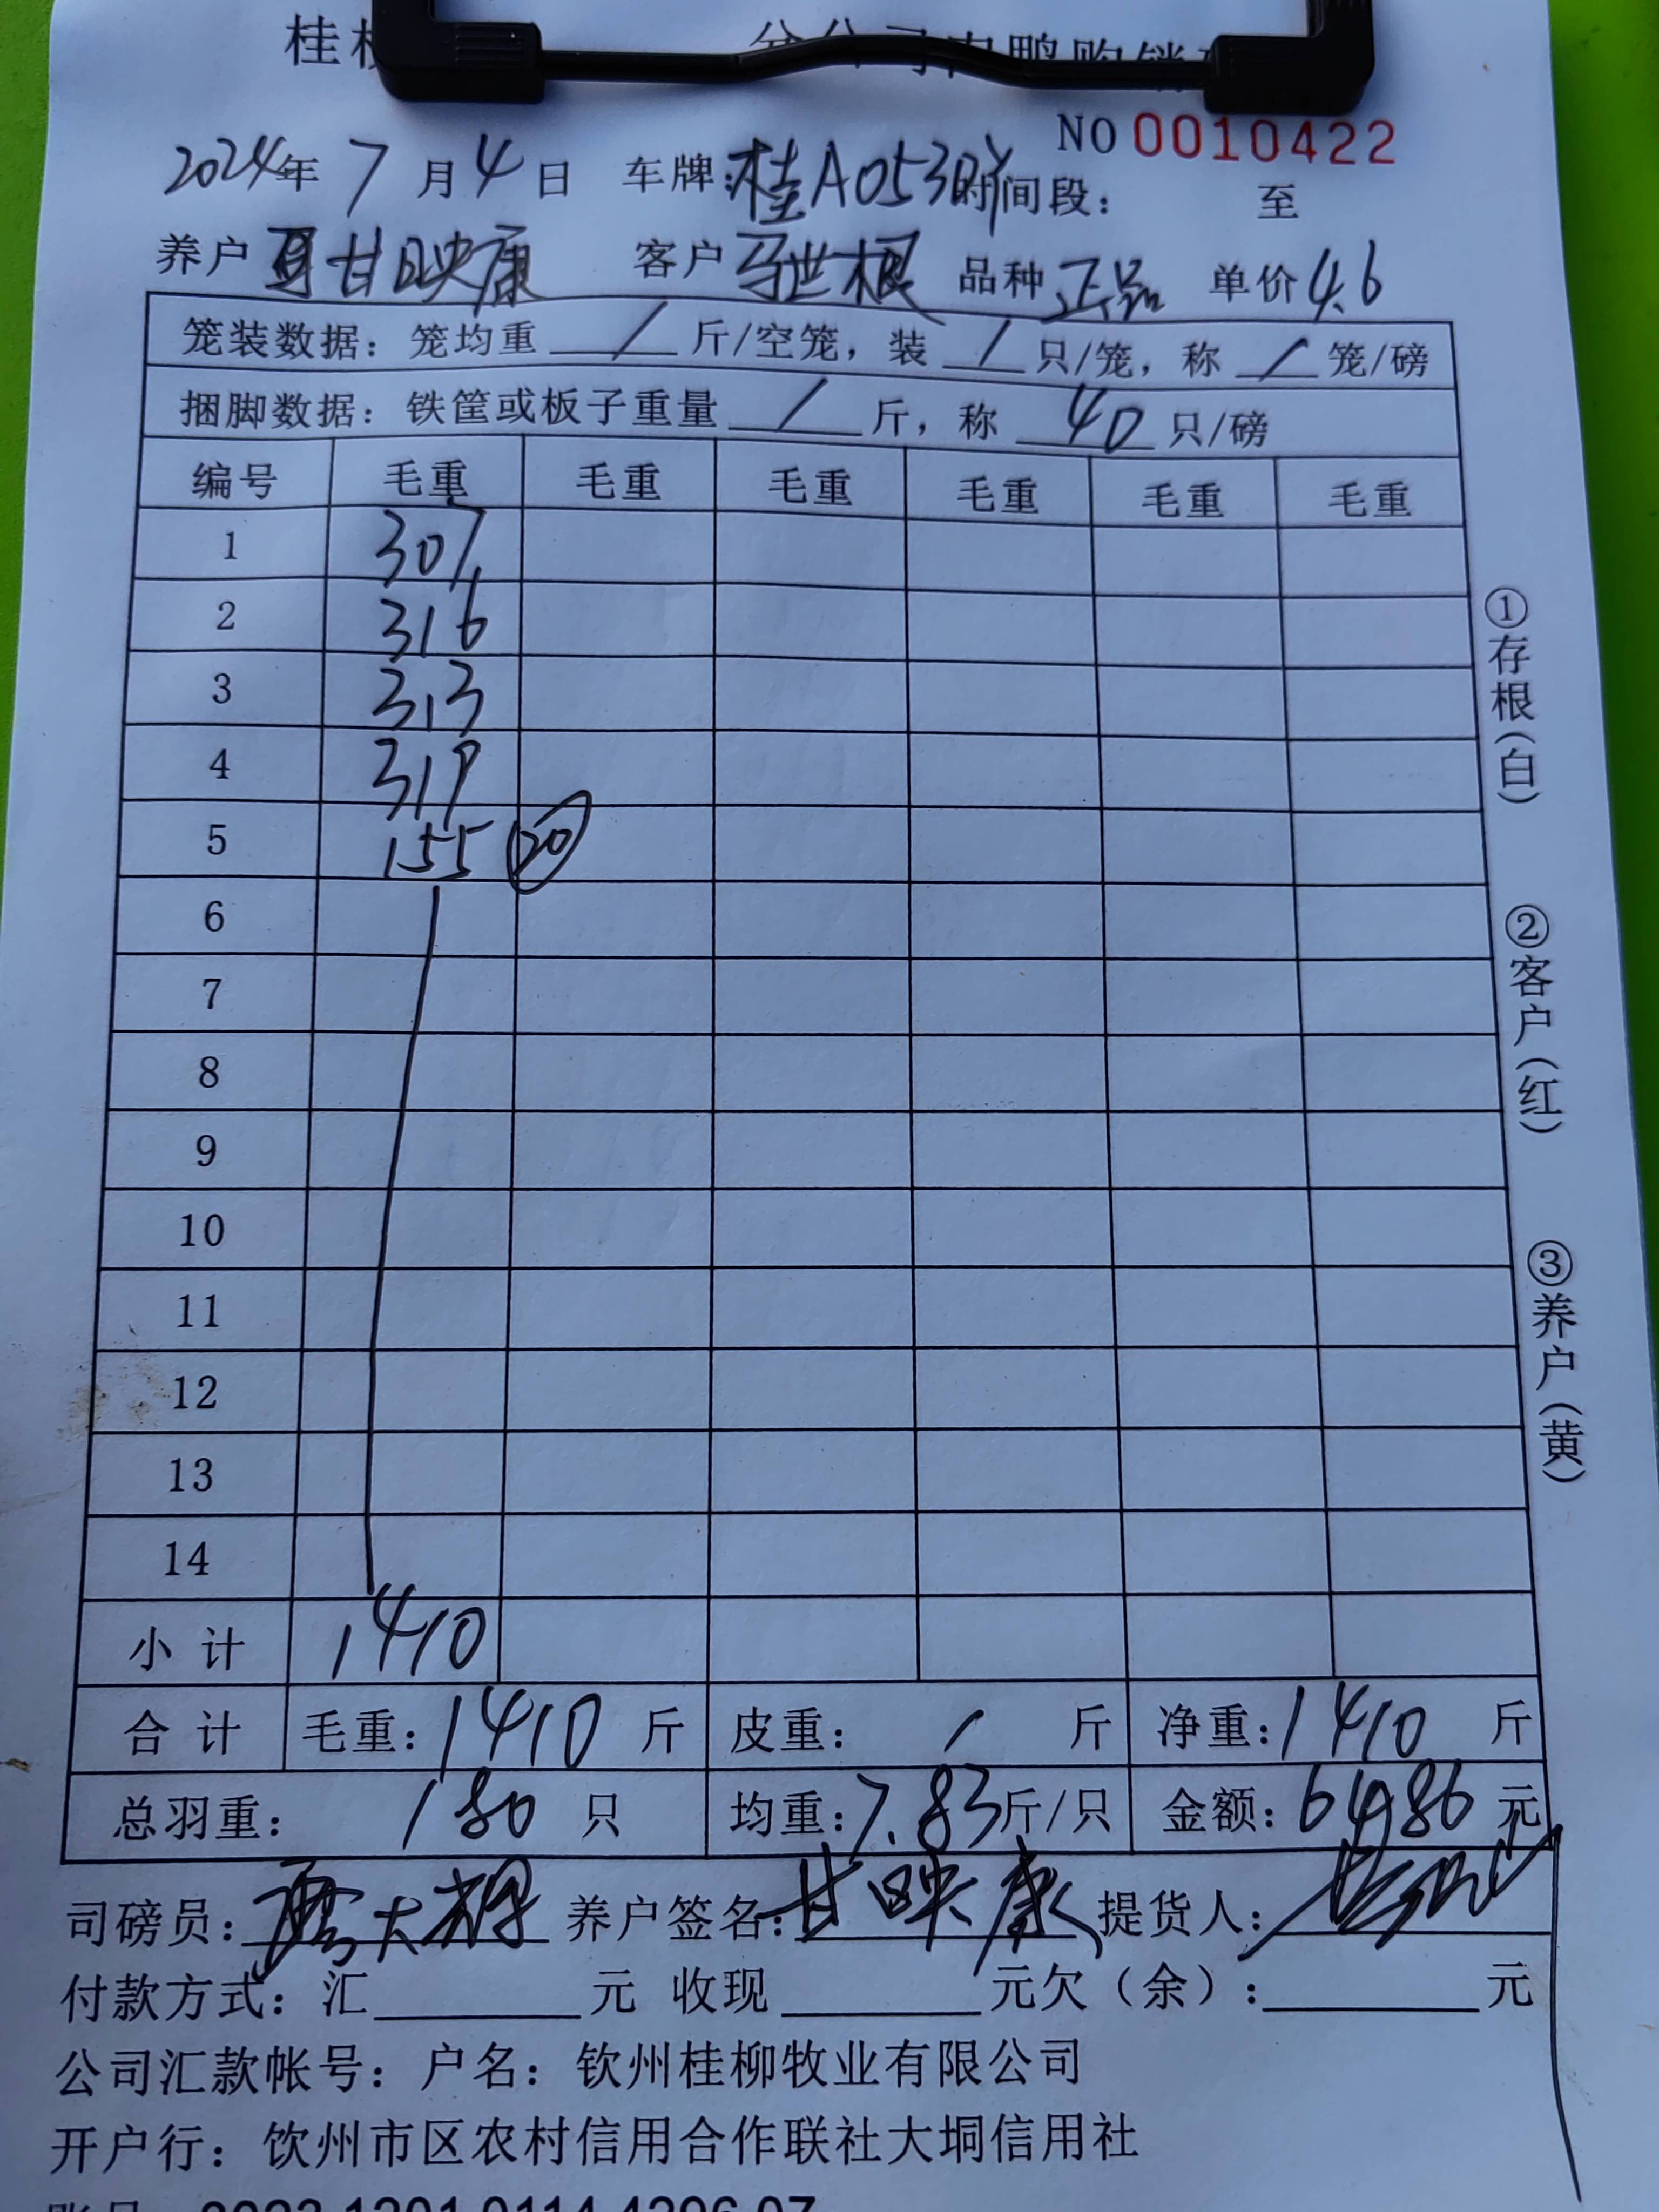 桂
分公司肉鸭购销
NO 0010422
2024年 7 月 4 日 车牌:桂A053 时间段: 至
养户 甘映康 客户 马世根 品种 正品 单价 4.6
笼装数据: 笼均重 / 斤/空笼, 装 / 只/笼, 称 / 笼/磅
捆脚数据: 铁筐或板子重量 / 斤, 称 40 只/磅
编号 毛重 毛重 毛重 毛重 毛重 毛重
1 307
2 316
3 313
4 319
5 155 20
6
7
8
9
10
11
12
13
14
小 计 1410
合 计 毛重: 1410 斤 皮重: / 斤 净重: 1410 斤
总羽重: 180 只 均重: 7.83 斤/只 金额: 6486 元
司磅员: 养户签名: 甘映康 提货人:
付款方式: 汇 元 收现 元欠(余): 元
公司汇款帐号: 户名: 钦州桂柳牧业有限公司
开户行: 钦州市区农村信用合作联社大垌信用社
①存根(白)
②客户(红)
③养户(黄)